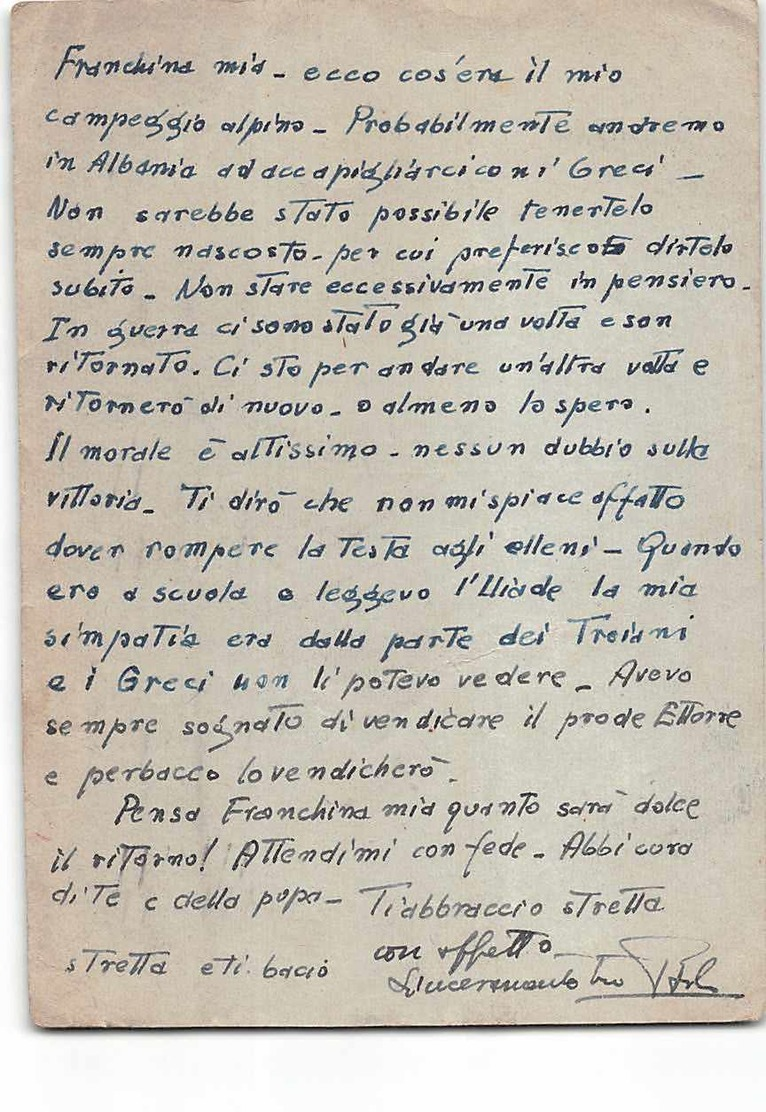 Franchina mia - ecco cos'era il mio
campeggio alpino - Probabilmente andremo
in Albania ad accapigliarci con i Greci -
Non sarebbe stato possibile tenertelo
sempre nascosto - per cui preferisco dirtelo
subito - Non stare eccessivamente in pensiero -
In guerra ci sono stato già una volta e son
ritornato. Ci sto per andare un'altra volta e
ritornerò di nuovo - o almeno lo spero.
Il morale è altissimo - nessun dubbio sulla
vittoria - Ti dirò che non mi spiace affatto
dover rompere la testa agli elleni - Quando
ero a scuola e leggevo l'Iliade la mia
simpatia era dalla parte dei Troiani
e i Greci non li potevo vedere - Avevo
sempre sognato di vendicare il prode Ettorre
e perbacco lo vendicherò.
Pensa Franchina mia quanto sarà dolce
il ritorno! Attendimi con fede - Abbi cura
di te e della pupa - Ti abbraccio stretta
stretta e ti bacio con affetto -
Sinceramente tuo